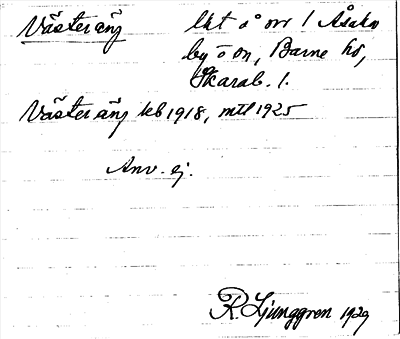 Västeräng lht å orr 1 Åsaka
by ö on, Barne hd,
Skarab. l.
Västeräng kb 1918, mtl 1925
Anv. ej.
R. Ljunggren 1929